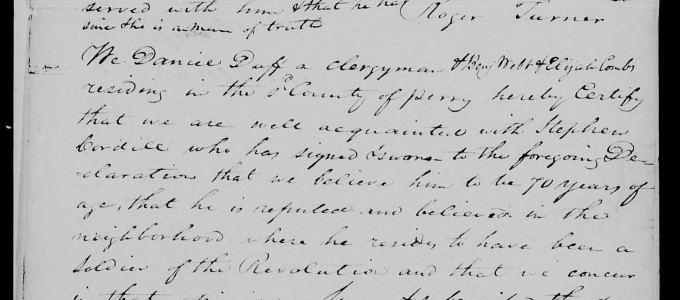 served with him & that he has Roger Turner
since he is a man of truth
We Daniel Duff a clergyman & Benj Webb & Elijah Combs
residing in the sd County of perry hereby Certify
that we are well acquainted with Stephen
Cordill who has signed & sworn to the foregoing De-
claration that we believe him to be 70 years of
age, that he is reputed and believed in the
neighborhood where he resides to have been a
Soldier of the Revolution and that we concur
in that